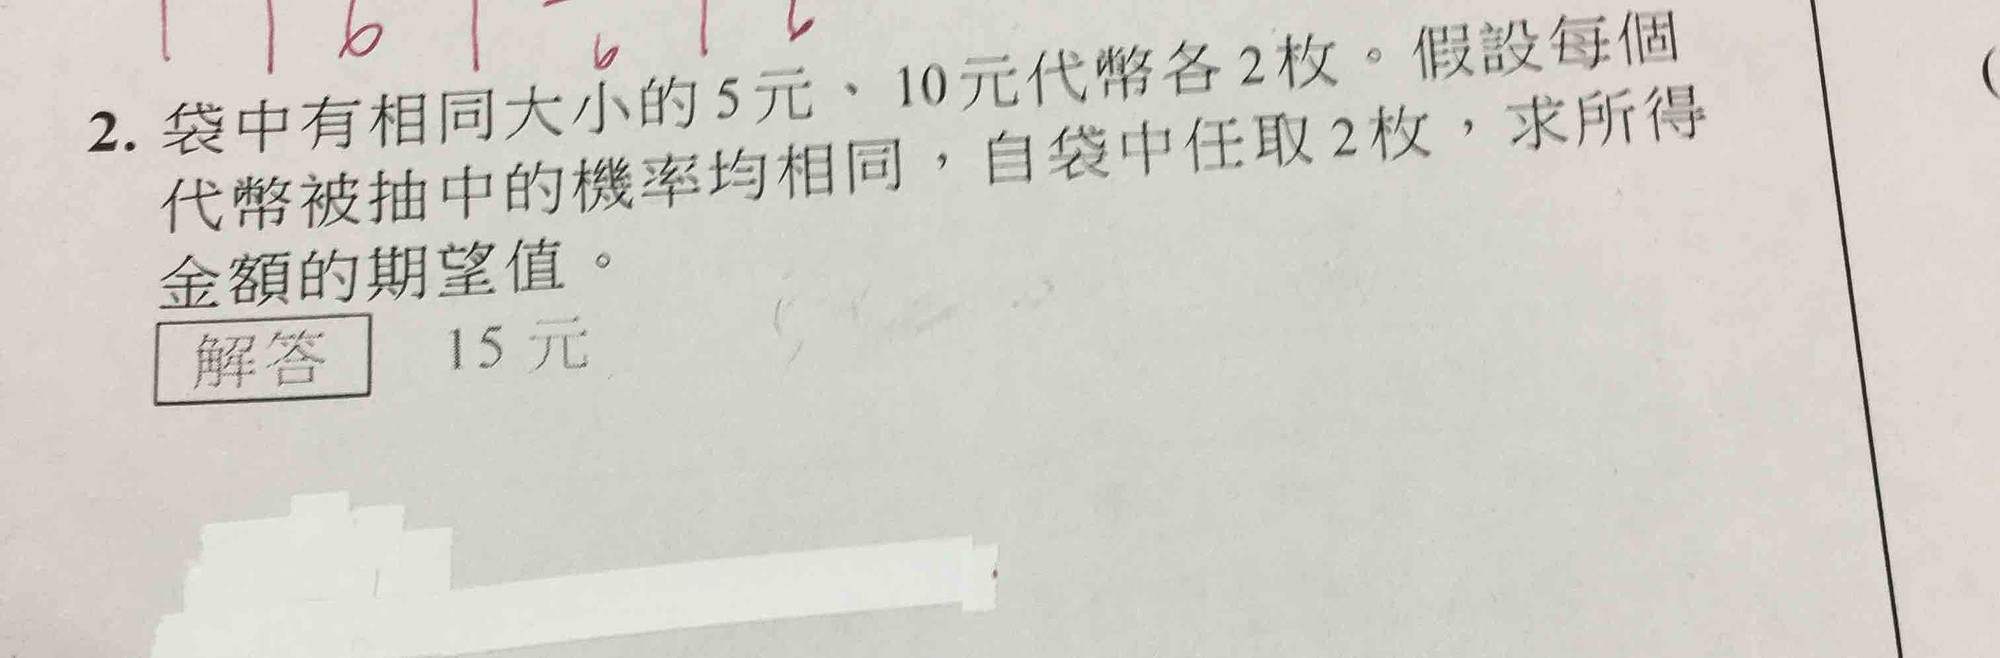 2. 袋中有相同大小的5元、10元代幣各2枚。假設每個
代幣被抽中的機率均相同，自袋中任取2枚，求所得
金額的期望值。
解答 15元